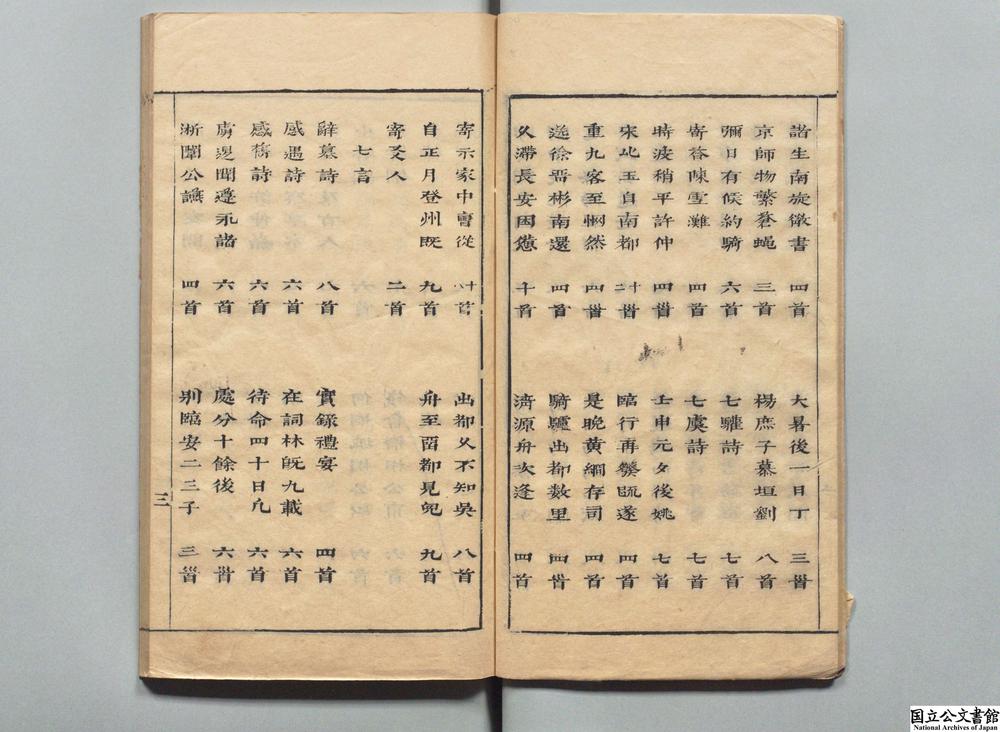 諸生南旋徵書 四首 大暑後一日丁 三首
京師物繁蒼蝇 三首 楊庶子慕垣劉 八首
彌日有候約騎 六首 七驩詩 七首
寄答陳雪灘 四首 七虞詩 七首
時疫稍平許仲 四首 壬申元夕後姚 七首
宋此玉自南都 十首 臨行再盥既遂 四首
重九客至惘然 四首 是晚黃綱存司 四首
送徐晋彬南還 四首 騎驢出都数里 四首
久滯長安因憊 十首 濟源舟次逢 四首
寄示家中曹從 十首 出都久不知吳 八首
自正月登州既 九首 舟至留都見兒 九首
寄爻人 二首
辭墓詩 八首 實録禮宴 四首
感遇詩 六首 在詞林既九載 六首
感舊詩 六首 待命四十日凡 六首
虜退聞遵永諸 六首 處分十餘後 六首
浙闈公讌 四首 別臨安二三子 三首
三
国立公文書館
National Archives of Japan